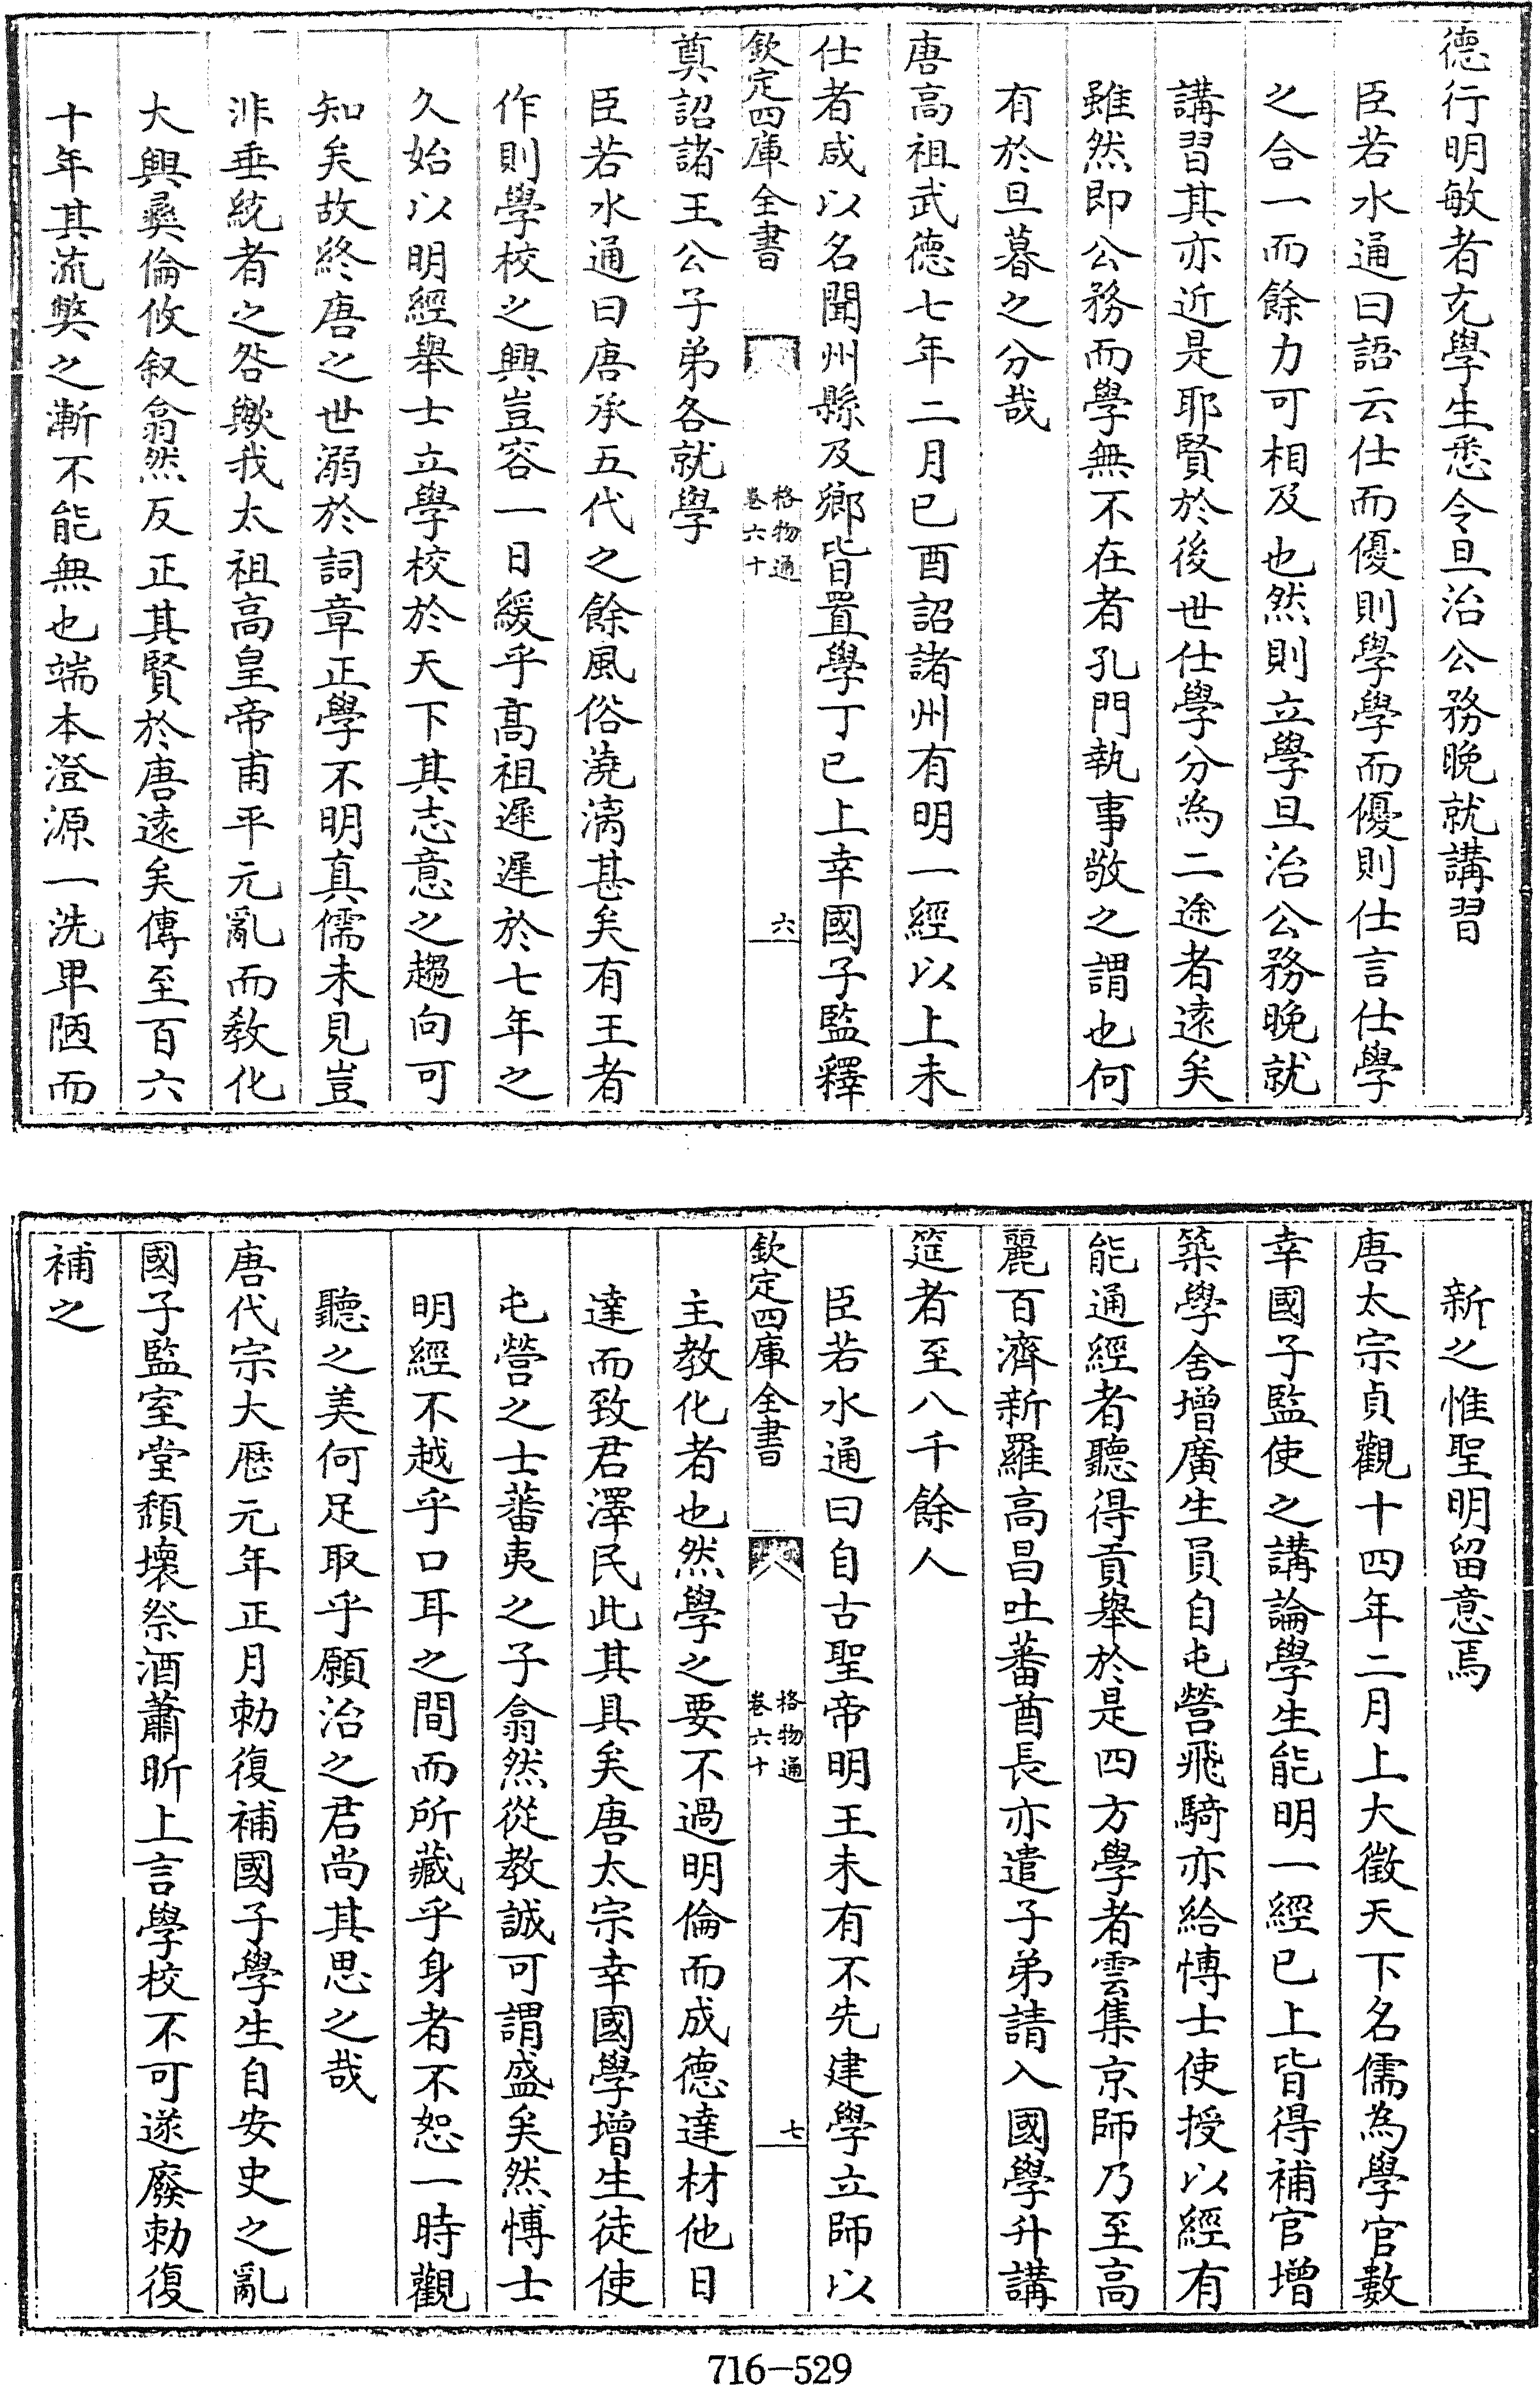 德行明敏者充學生悉令旦治公務晚就講習
臣若水通曰語云仕而優則學學而優則仕言仕學
之合一而餘力可相及也然則立學旦治公務晚就
講習其亦近是耶賢於後世仕學分為二途者遠矣
雖然即公務而學無不在者孔門執事敬之謂也何
有於旦暮之分哉
唐高祖武德七年二月已酉詔諸州有明一經以上未
仕者咸以名聞州縣及鄉皆置學丁已上幸國子監釋
欽定四庫全書
格物通
卷六十
六
奠詔諸王公子弟各就學
臣若水通曰唐承五代之餘風俗澆漓甚矣有王者
作則學校之興豈容一日緩乎高祖遲遲於七年之
久始以明經舉士立學校於天下其志意之趨向可
知矣故終唐之世溺於詞章正學不明真儒未見豈
非垂統者之咎歟我太祖高皇帝甫平元亂而教化
大興彞倫攸叙翕然反正其賢於唐遠矣傳至百六
十年其流獘之漸不能無也端本澄源一洗卑陋而
新之惟聖明留意焉
唐太宗貞觀十四年二月上大徵天下名儒為學官數
幸國子監使之講論學生能明一經已上皆得補官增
築學舍增廣生員自屯營飛騎亦給博士使授以經有
能通經者聽得貢舉於是四方學者雲集京師乃至高
麗百濟新羅高昌吐蕃酋長亦遣子弟請入國學升講
筵者至八千餘人
臣若水通曰自古聖帝明王未有不先建學立師以
欽定四庫全書
格物通
卷六十
七
主教化者也然學之要不過明倫而成德達材他日
達而致君澤民此其具矣唐太宗幸國學增生徒使
屯營之士蕃夷之子翕然從教誠可謂盛矣然博士
明經不越乎口耳之間而所藏乎身者不恕一時觀
聽之美何足取乎願治之君尚其思之哉
唐代宗大厯元年正月勅復補國子學生自安史之亂
國子監室堂頽壞祭酒蕭昕上言學校不可遂廢勅復
補之
716-529